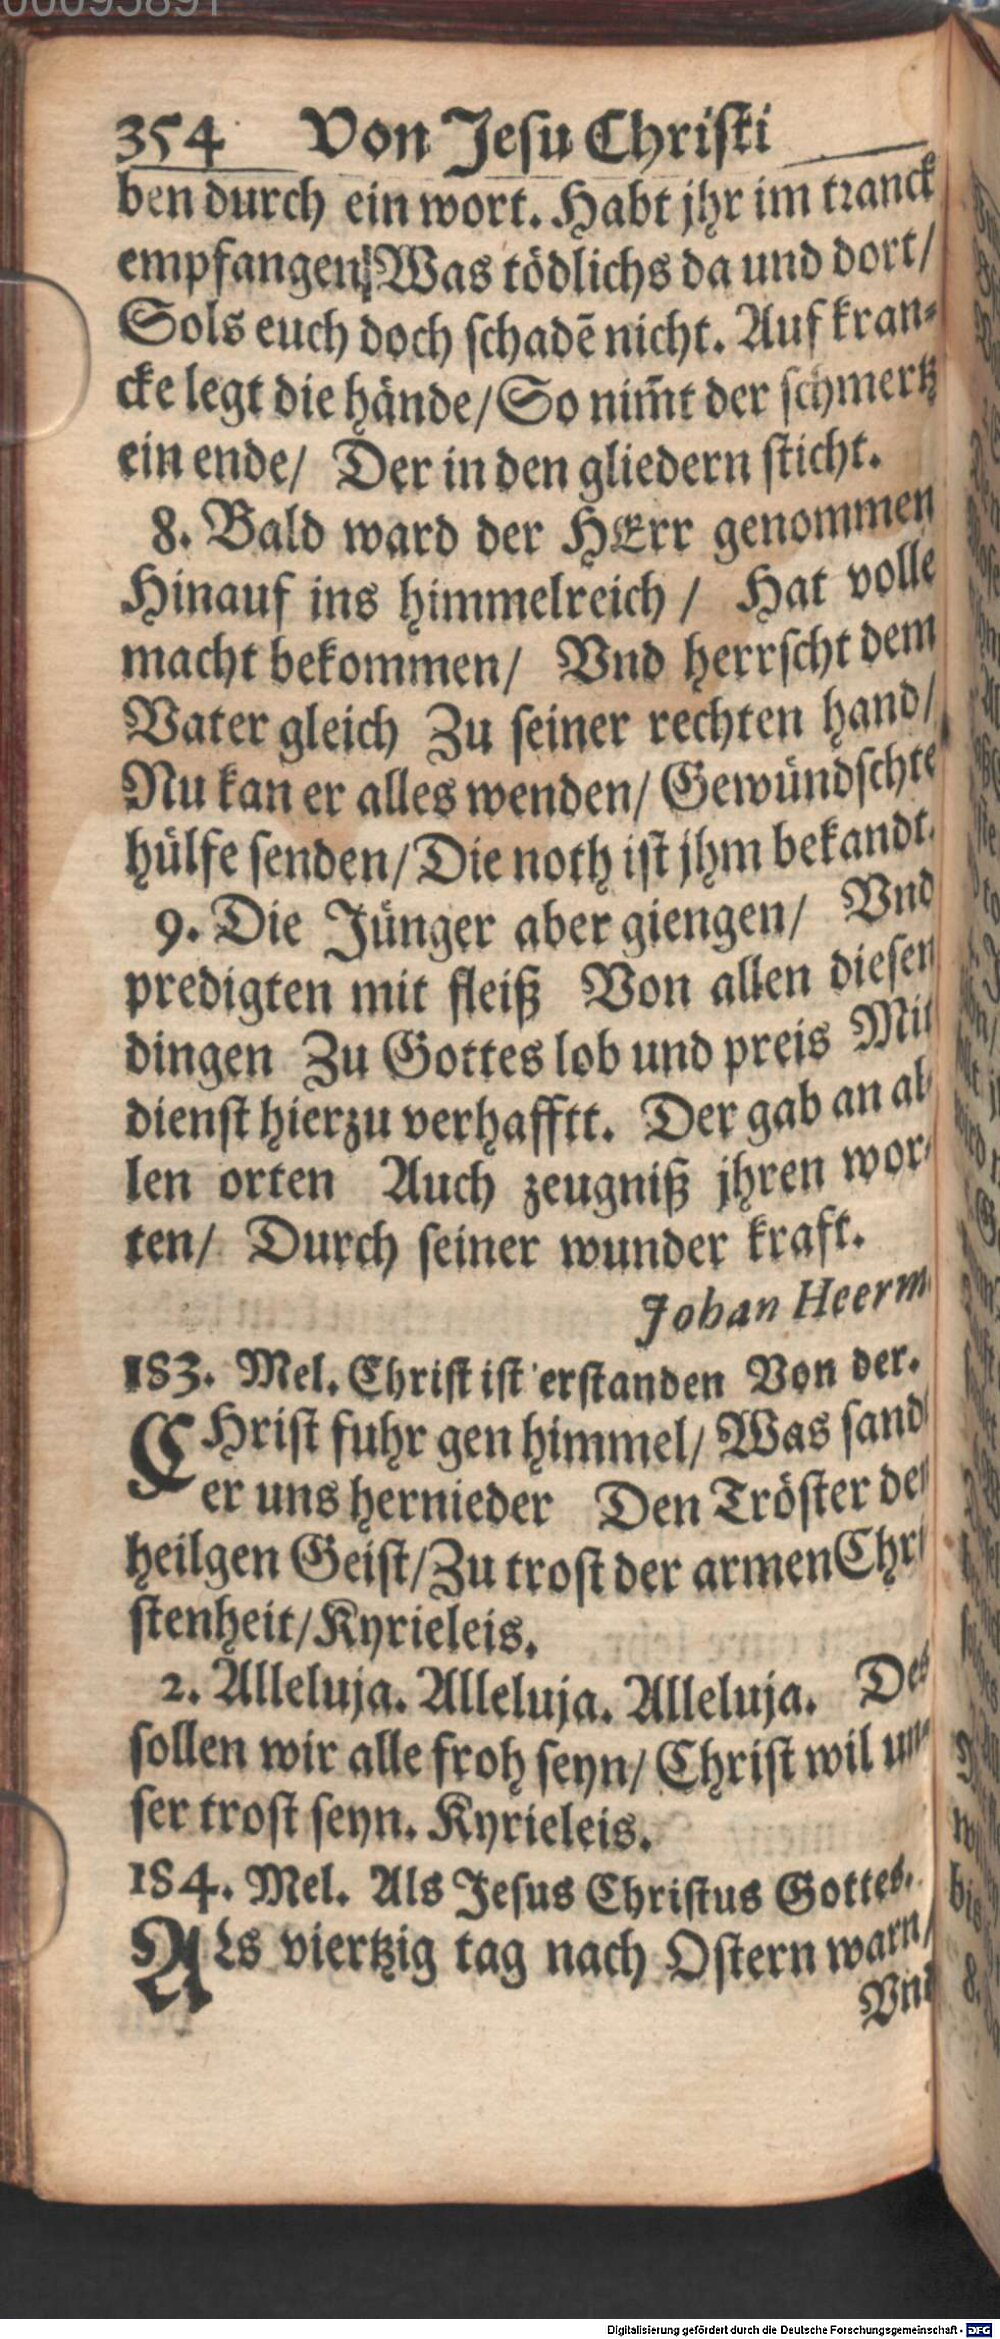 00095891
354 Von Jesu Christi
ben durch ein wort. Habt jhr im tranck
empfangen/ Was tödlichs da und dort/
Sols euch doch schadē nicht. Auf kran-
cke legt die hände/ So nim̄t der schmertz
ein ende/ Der in den gliedern sticht.
8. Bald ward der HErr genommen
Hinauf ins himmelreich / Hat volle
macht bekommen/ Vnd herrscht dem
Vater gleich Zu seiner rechten hand/
Nu kan er alles wenden/ Gewündschte
hülfe senden/ Die noth ist jhm bekandt.
9. Die Jünger aber giengen/ Vnd
predigten mit fleiß Von allen diesen
dingen Zu Gottes lob und preis Mit
dienst hierzu verhafftt. Der gab an al-
len orten Auch zeugniß jhren wor-
ten/ Durch seiner wunder kraft.
Johan Heerm.
183. Mel. Christ ist erstanden Von der.
CHrist fuhr gen himmel/ Was sand
er uns hernieder Den Tröster den
heilgen Geist/ Zu trost der armen Chri
stenheit/ Kyrieleis.
2. Alleluja. Alleluja. Alleluja. Des
sollen wir alle froh seyn/ Christ wil un-
ser trost seyn. Kyrieleis.
184. Mel. Als Jesus Christus Gottes.
ALs viertzig tag nach Ostern warn/
Vnd
Digitalisierung gefördert durch die Deutsche Forschungsgemeinschaft - DFG